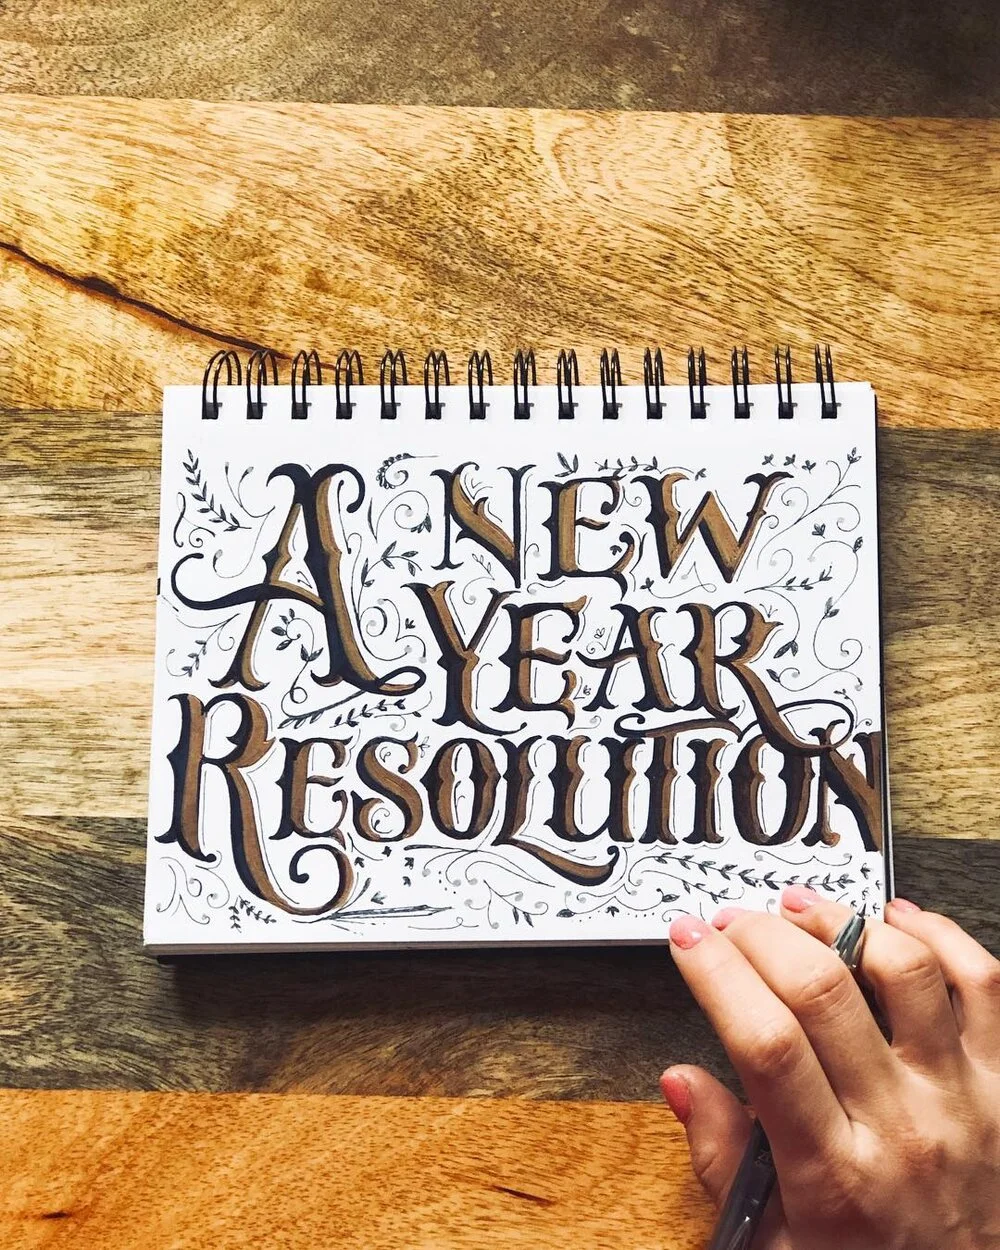 A NEW
YEAR
RESOLUTION